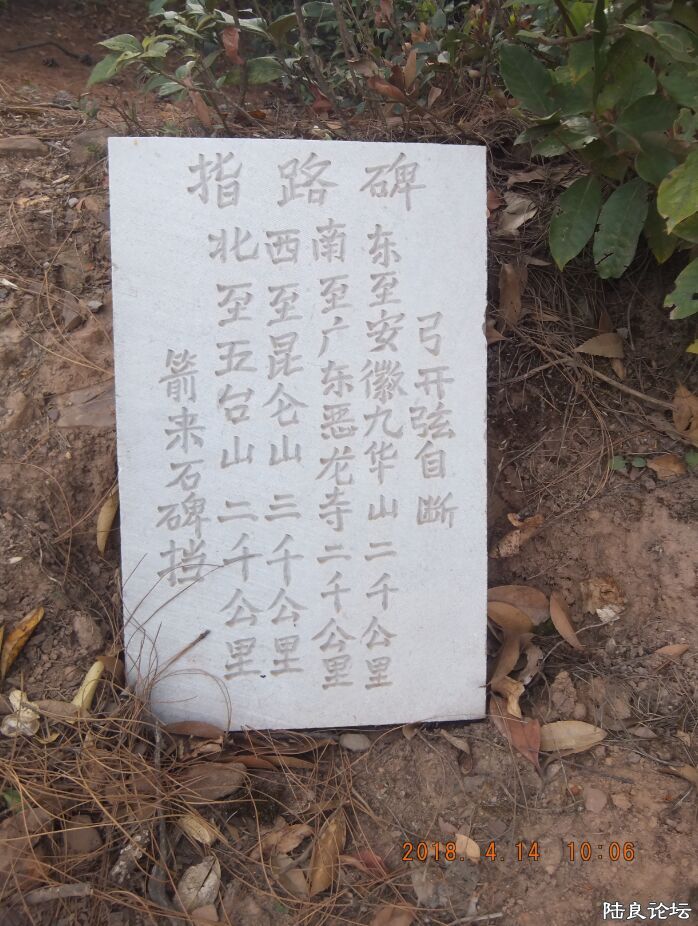 指路碑
弓开弦自断
东至安徽九华山二千公里
南至广东恶龙寺二千公里
西至昆仑山三千公里
北至五台山二千公里
箭来石碑挡
2018. 4.14 10:06
陆良论坛